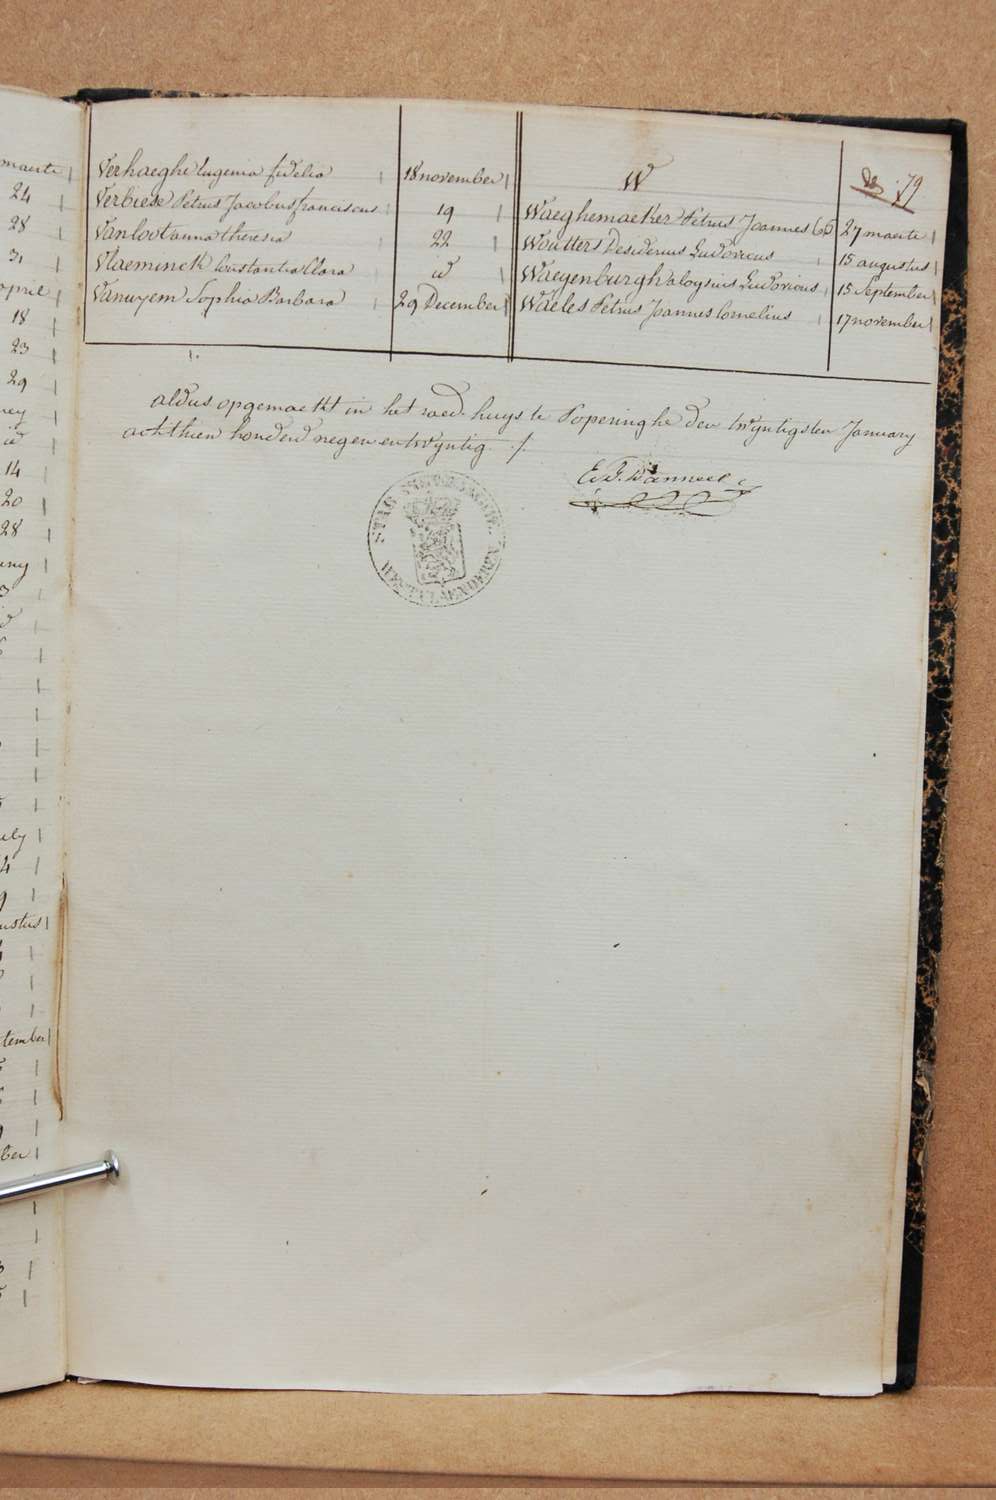 maerte
24
28
31
april
18
23
29
mey
id
14
20
28
uly
4
9
ustus
tember
ber
Verhaeghe Eugenia fidelia 18 november
Verbiese Petrus Jacobus franciscus 19
Vanloot anna theresia 22
Vlaeminck Constantia Clara id
Vanuxem Sophia Barbara 29 December
79
W
Waeghemaeker Petrus Joannes 27 maerte
Woutters Desiderius Ludovicus 15 augustus
Waegenburgh aloysius Ludovicus 15 September
Waeles Petrus Joannes Cornelius 17 november
aldus opgemaekt in het raed-huys te Poperinghe den twyntigsten January
achthien honderd negen en twyntig ./.
STAD
WESTVLAENDEREN